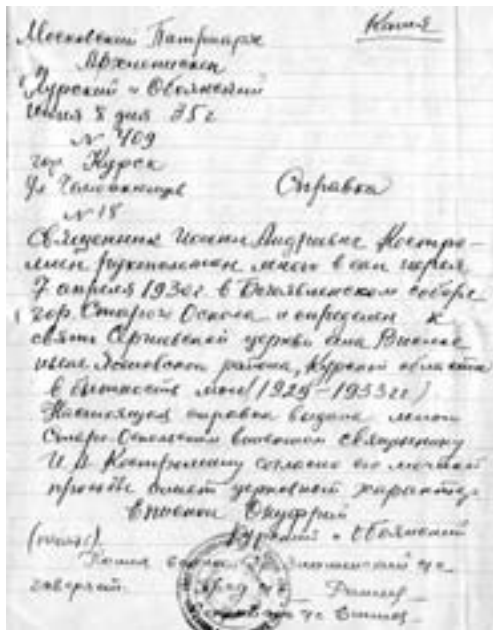 Копия
Московский Патриарх
Архиепископ
Курский и Обоянский
июня 8 дня 35 г
№ 409
гор. Курск
Ул.
№ 18
Справка
Священник Иоанн Андреевич Костро-
мин рукоположен мною в сан иерея
7 апреля 1930 г. в Богоявленском соборе
гор. Старого Оскола и определен к
Сергиевской церкви села
района, Курской области
в бытность мою (1929-1933 гг)
Настоящая справка выдана мною
Старо-Оскольским священнику
И. А. Костромину согласно его личной
просьбе имеет церковный характер
Епископ Онуфрий
Курский и Обоянский
(печать)
Копия верна
заверяет